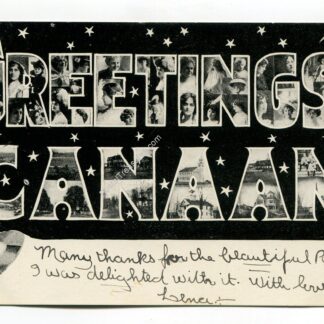 GREETINGS
CANAAN
Many thanks for the beautiful P
I was delighted with it. With love
Lena